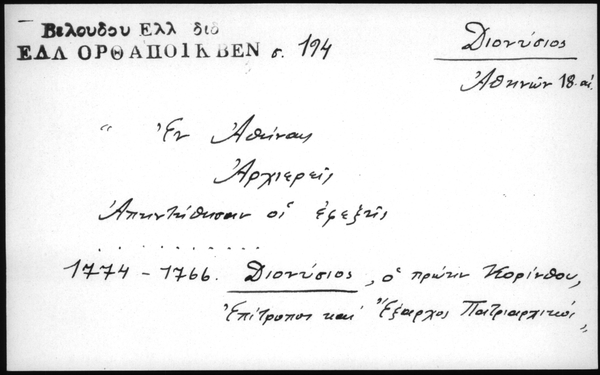 Βελουδου Ελλ διδ
ΕΛΛ ΟΡΘ ΑΠΟΙΚ ΒΕΝ σ. 194
Διονύσιος
Ἀθηνῶν 18. αἰ.
" Ἐν Ἀθήναις
Ἀρχιερεῖς
Ἀπηντήθησαν οἱ ἐφεξῆς
. . . . . . . . . . .
1774 - 1766. Διονύσιος, ὁ πρώην Κορίνθου,
Ἐπίτροπος καὶ Ἔξαρχος Πατριαρχικός "